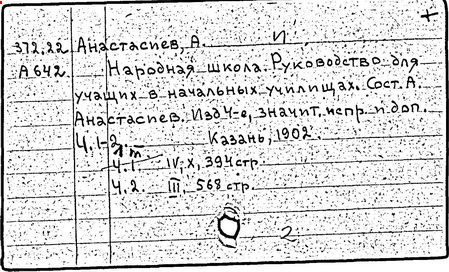 +
372.22 Анастасиев, А. И
А642 Народная школа. Руководство для
учащих в начальных училищах. Сост. А.
Анастасиев. Изд 4-е, значит. испр. и доп.
Ч.1-2. Казань, 1902.
Ч.1. IV-X, 394 стр.
Ч.2. III, 568 стр.
2